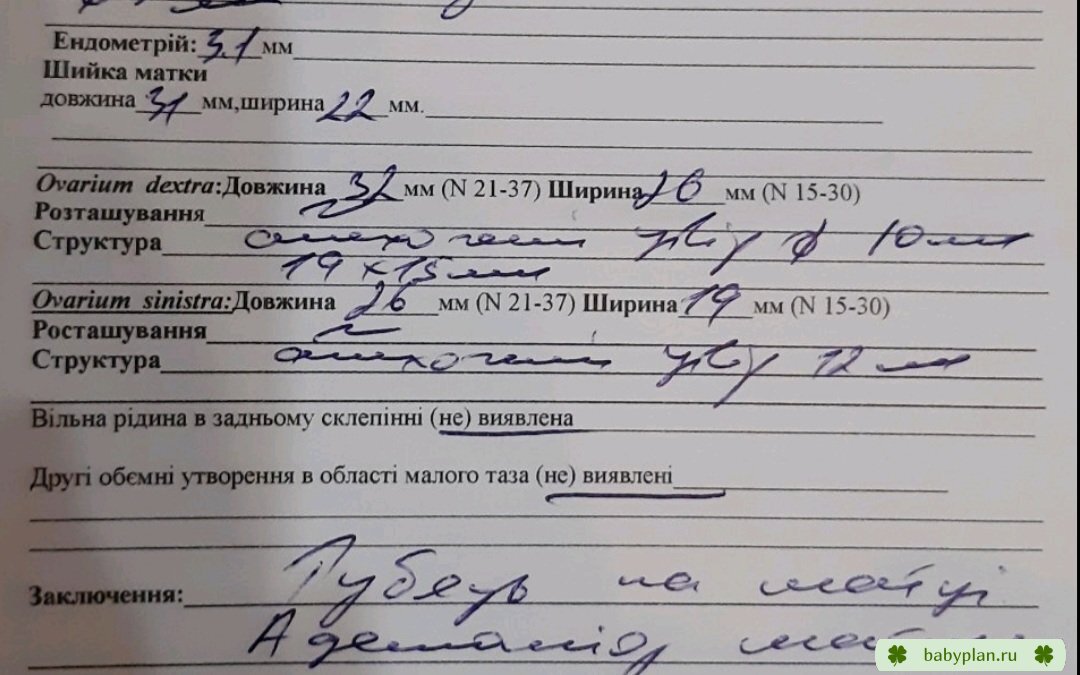 Ендометрій: 3,1 мм
Шийка матки
довжина 31 мм,ширина 22 мм.
Ovarium dextra:Довжина 32 мм (N 21-37) Ширина 26 мм (N 15-30)
Розташування N
Структура анехогенні у 10мм
19 х 15 мм
Ovarium sinistra:Довжина 26 мм (N 21-37) Ширина 19 мм (N 15-30)
Росташування N
Структура анехогенні 12 мм
Вільна рідина в задньому склепінні (не) виявлена
Другі обємні утворення в області малого таза (не) виявлені
Заключення: Рубець на матці
Аденоміоз
babyplan.ru